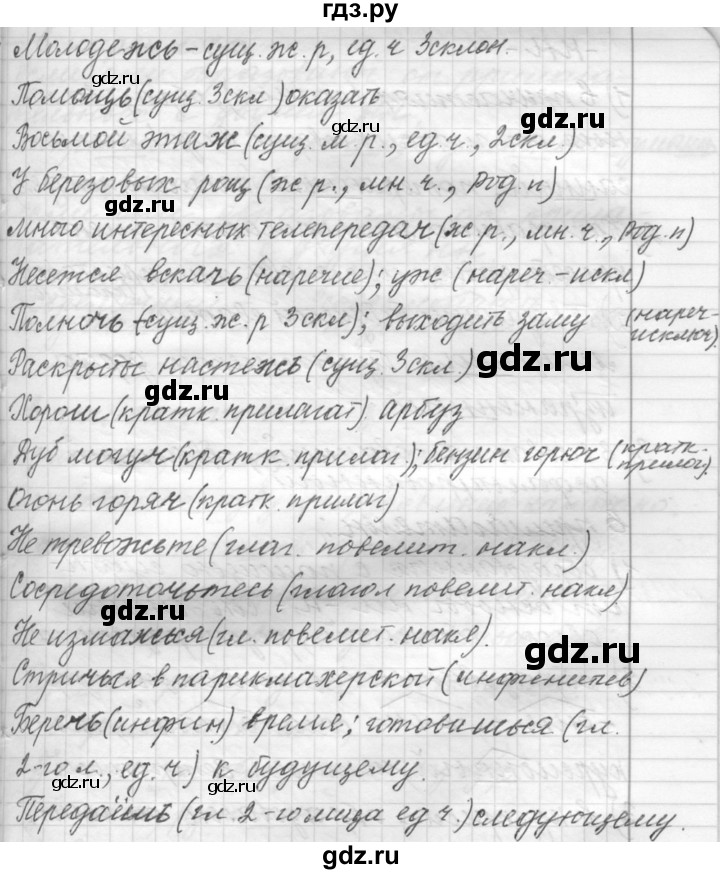 гдз.ру
Молодежь - сущ. ж. р, ед. ч 3склон.
Помощь (сущ. 3скл) оказать
gdz.ru
Восьмой этаж (сущ. м. р., ед. ч., 2скл)
У березовых рощ (ж. р., мн. ч., Род. п)
gdz.ru
Много интересных телепередач (ж. р., мн. ч., Род. п)
Несется вскачь (наречие); уж (нареч. - искл)
Полночь (сущ. ж. р 3скл); выходить заму (нареч - исключ).
gdz.ru
Раскрыты настежь (сущ. 3скл.)
gdz.ru
Хорош (кратк. прилагат) арбуз
Дуб могуч (кратк. прилаг); бензин горюч (кратк. прилаг).
Огонь горяч (кратк. прилаг)
gdz.ru
Не тревожьте (глаг. повелит. накл.)
Сосредоточьтесь (глагол повелит. накл)
gdz.ru
Не измажься (гл. повелит. накл).
gdz.ru
Стричься в парикмахерской (инфенитив)
Беречь (инфин) время; готовишься (гл.
2-го л., ед. ч) к будущему.
gdz.ru
Передаёшь (гл. 2-го лица ед ч.) следующему.
gdz.ru
gdz.ru